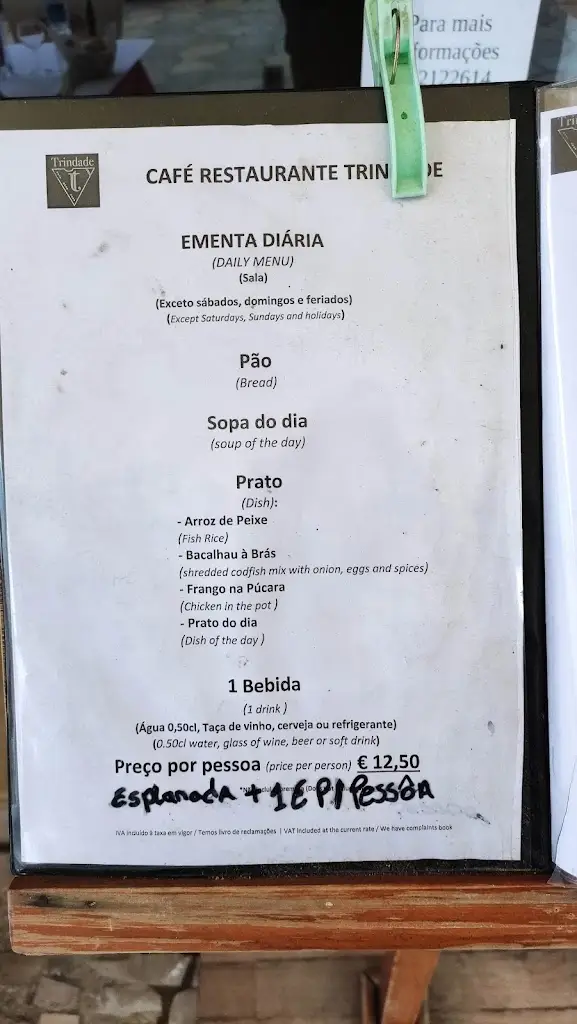 Para mais
formações
2122614
Trindade
t
CAFÉ RESTAURANTE TRIN DE
EMENTA DIÁRIA
(DAILY MENU)
(Sala)
(Exceto sábados, domingos e feriados)
(Except Saturdays, Sundays and holidays)
Pão
(Bread)
Sopa do dia
(soup of the day)
Prato
(Dish):
- Arroz de Peixe
(Fish Rice)
- Bacalhau à Brás
(shredded codfish mix with onion, eggs and spices)
- Frango na Púcara
(Chicken in the pot )
- Prato do dia
(Dish of the day )
1 Bebida
(1 drink )
(Água 0,50cl, Taça de vinho, cerveja ou refrigerante)
(0.50cl water, glass of wine, beer or soft drink)
Preço por pessoa (price per person) € 12,50
Esplanada + 1€ P/ Pessoa
IVA incluído à taxa em vigor / Temos livro de reclamações | VAT Included at the current rate / We have complaints book